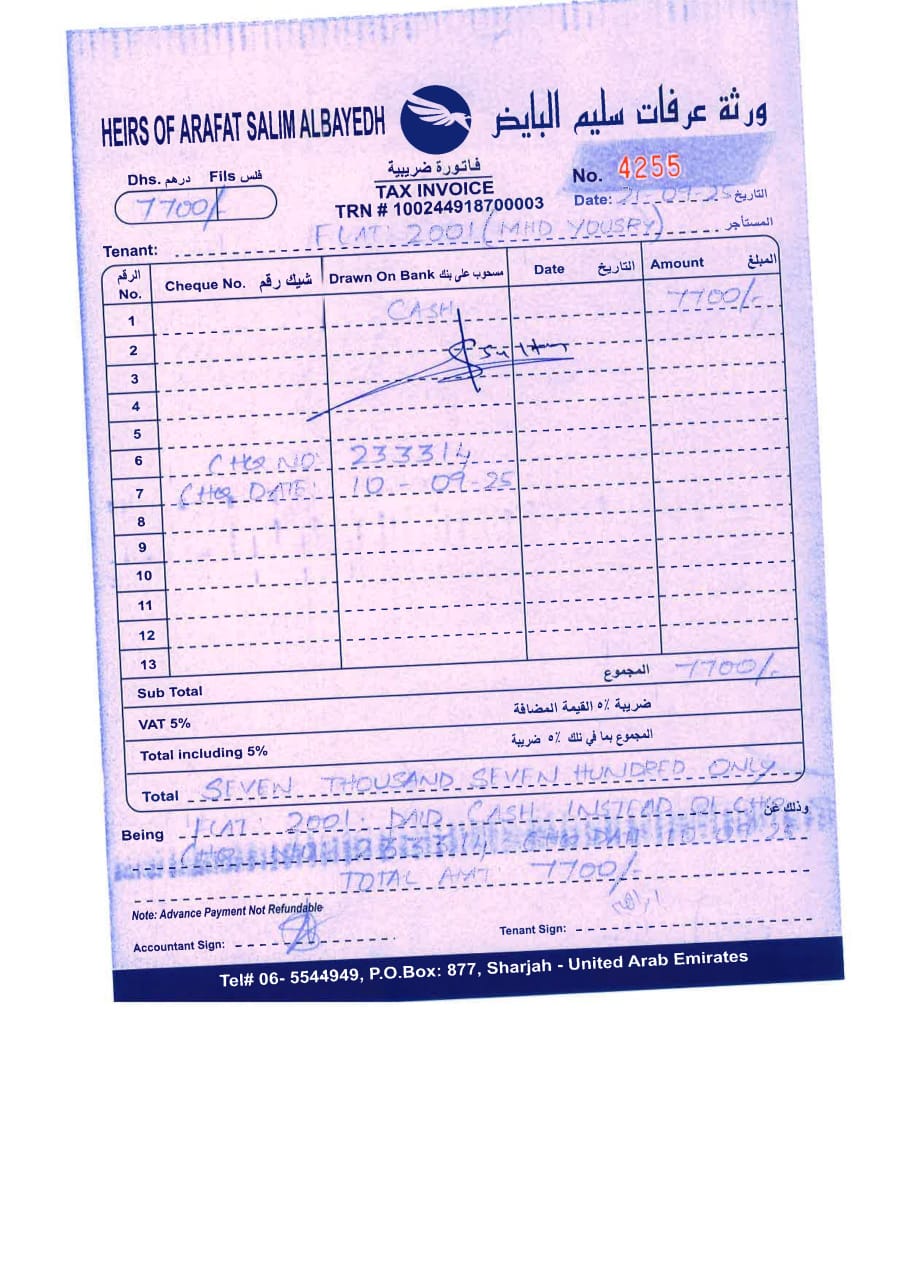 HEIRS OF ARAFAT SALIM ALBAYEDH
ورثة عرفات سليم البايض
Dhs. درهم Fils فلس
7700/-
فاتورة ضريبية
TAX INVOICE
TRN # 100244918700003
No. 4255
Date: 21-09-25 التاريخ
Tenant: FLAT: 2001 (MHD YOUSRY) المستأجر
الرقم No. Cheque No. شيك رقم Drawn On Bank مسحوب على بنك Date التاريخ Amount المبلغ
1 CASH 7700/-
2
3
4
5
6 CHQ NO: 233314
7 CHQ DATE: 10-09-25
8
9
10
11
12
13
Sub Total المجموع 7700/-
VAT 5% ضريبة ٥٪ القيمة المضافة
Total including 5% المجموع بما في تلك ٥٪ ضريبة
Total SEVEN THOUSAND SEVEN HUNDRED ONLY
Being FLAT: 2001. PAID CASH INSTEAD OF CHQ وذلك عن
CHQ NO: 233314 10-09-25
TOTAL AMT: 7700/-
Note: Advance Payment Not Refundable
Accountant Sign: Tenant Sign:
Tel# 06- 5544949, P.O.Box: 877, Sharjah - United Arab Emirates